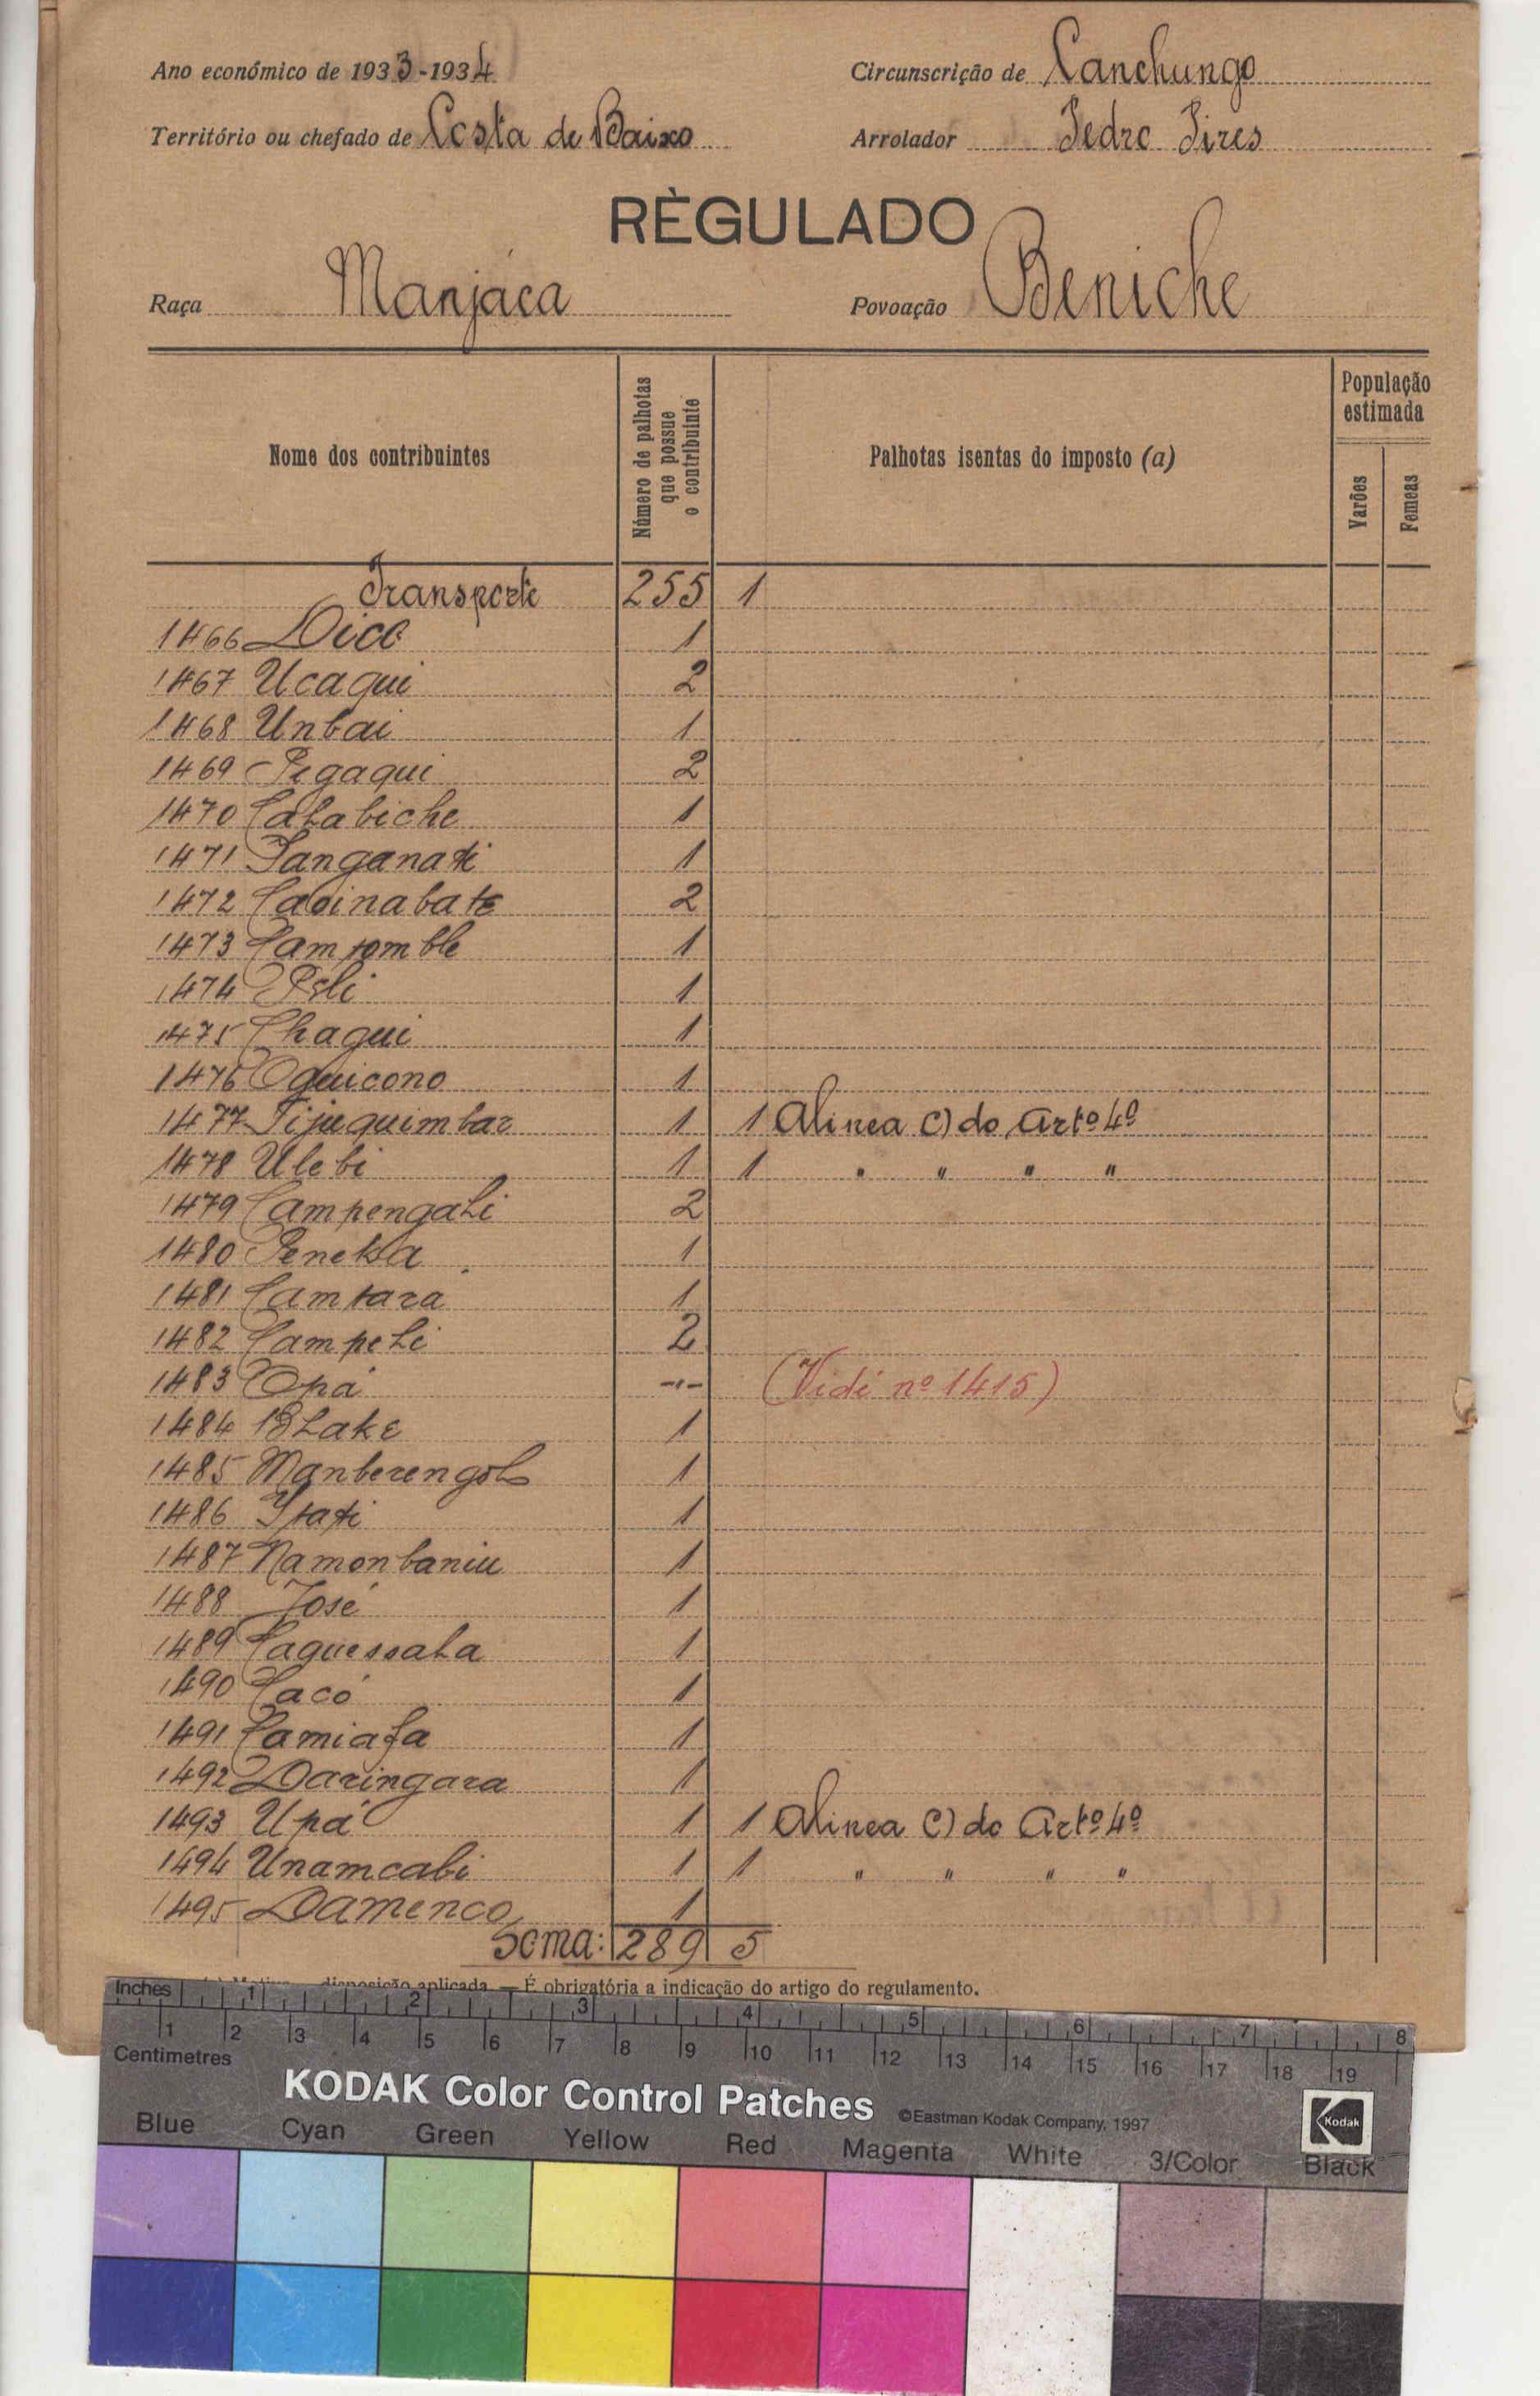 Ano económico de 1933-1934 Circunscrição de Canchungo
Território ou chefado de Costa de Baixo Arrolador Pedro Pires
RÈGULADO
Raça Manjaca Povoação Beniche
Nome dos contribuintes
Número de palhotas que possue o contribuinte
Palhotas isentas do imposto (a)
População estimada
Varões
Femeas
Transporte 255 1
1466 Dico 1
1467 Ucaqui 2
1468 Unbai 1
1469 Pegaqui 2
1470 Calabiche 1
1471 Janganati 1
1472 Caoinabate 2
1473 Camtomble 1
1474 Peli 1
1475 Chaqui 1
1476 Oquicono 1
1477 Tijuquimbar 1 1 Alinea C) do Artº 4º
1478 Ulebi 1 1 " " " "
1479 Campengali 2
1480 Peneka 1
1481 Camtara 1
1482 Campeli 2
1483 Opá -"- (Vidé nº 1415)
1484 Blake 1
1485 Manberengol 1
1486 Itati 1
1487 Namonbaniu 1
1488 José 1
1489 Caguessala 1
1490 Cacó 1
1491 Camiafa 1
1492 Daringara 1
1493 Upá 1 1 Alinea C) do Artº 4º
1494 Unamcabi 1 1 " " " "
1495 Damenco 1
Soma: 289 5
disposição aplicada — É obrigatória a indicação do artigo do regulamento.
Inches 1 2 3 4 5 6 7 8
1 2 3 4 5 6 7 8 9 10 11 12 13 14 15 16 17 18 19
Centimetres
KODAK Color Control Patches ©Eastman Kodak Company, 1997 Kodak
Blue Cyan Green Yellow Red Magenta White 3/Color Black